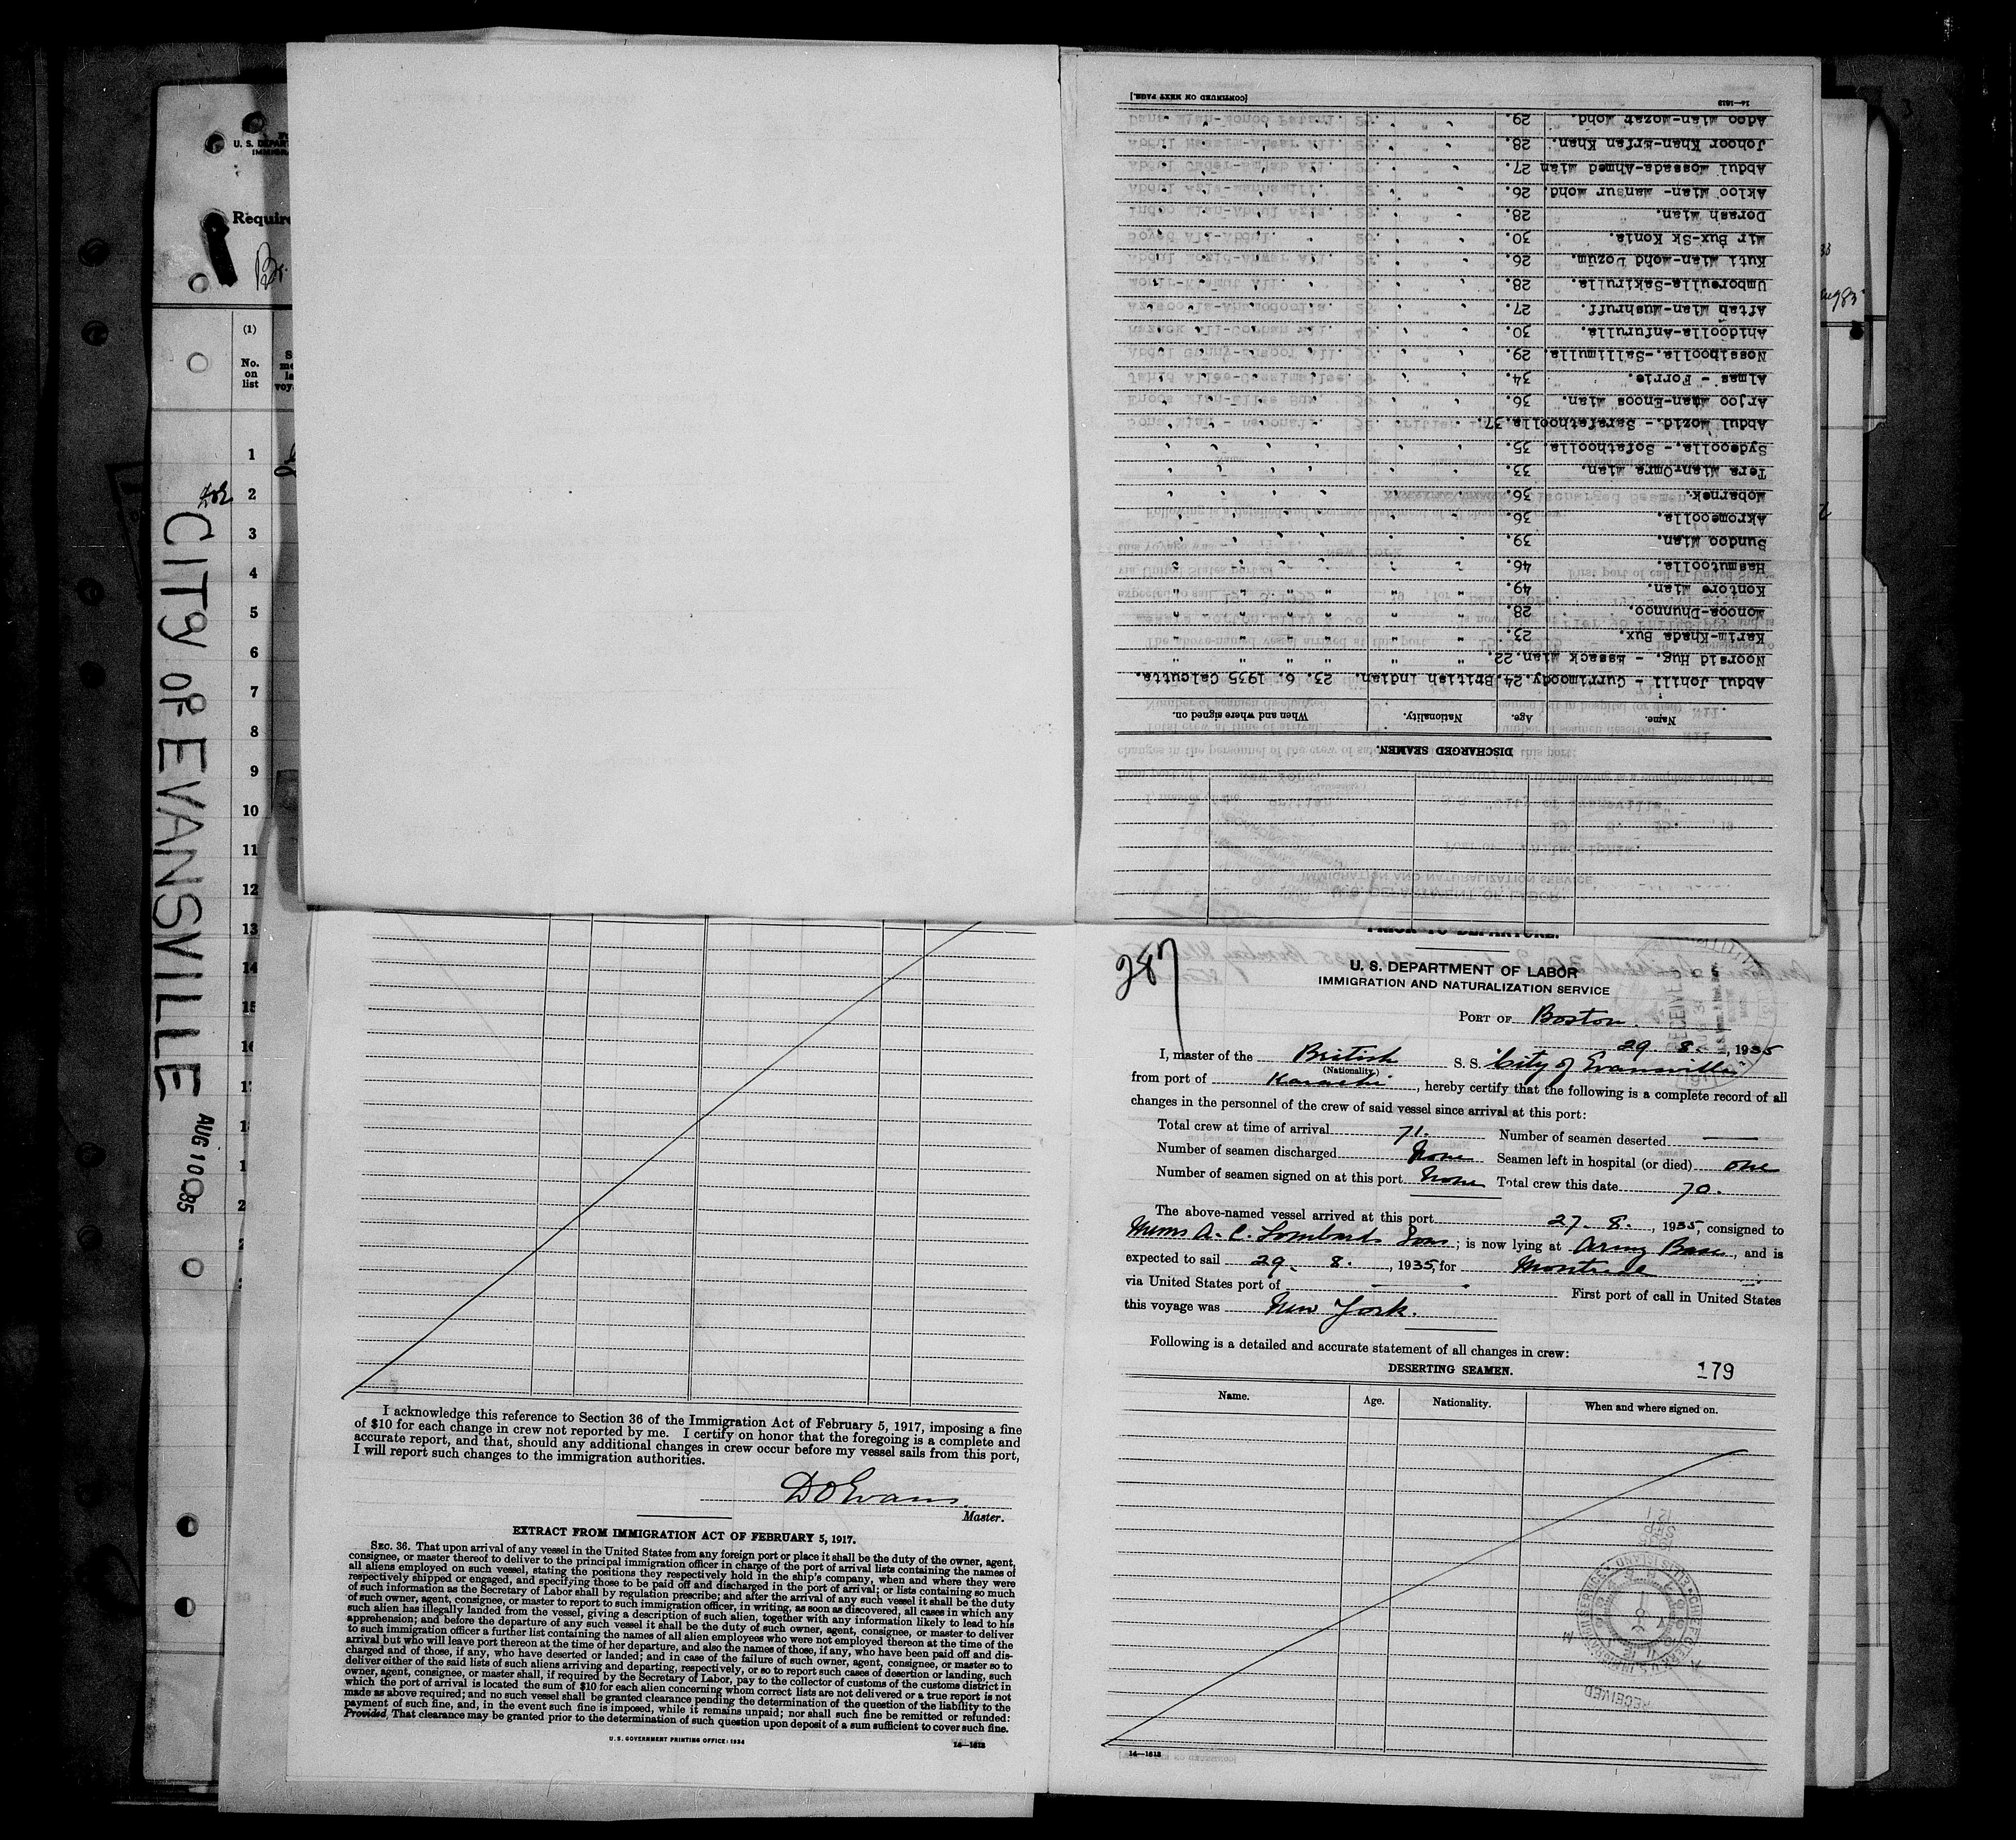 U. S. DEPAR
IMMIGRA
Require
Br.
(1)
No.
on
list
1
2
3
4
5
6
7
8
9
10
11
12
13
14
15
16
17
CITY OF EVANSVILLE
AUG 10 1935
DISCHARGED SEAMEN.
Name. Age. Nationality. When and where signed on.
Abdul Johill - Currimoody. 24. British Indian. 23. 6. 1935 Calcutta.
Noorsid Hug. - Essack Mian. 22. " " " " " "
Karim-Khada Bux. 23. " " " " " "
Monoo-Dhunnoo. 28. " " " " " "
Kontore Mian. 49. " " " " " "
Hasmutoolla. 46.
Sundoo Mian. 39.
Akromoolla. 36.
Mobarnek. 36.
Tera Mian-Omra Mian. 33.
Sydeoolla. - Sofathoolla. 35.
Abdul Mozid. - Sarafathoolla. 37.
Arjoo Mian-Enoos Mian. 36.
Almas - Forrie. 34.
Nosiboolla.-Sallimulla. 29.
Ahidoolla-Anfurulla. 30.
Aftab Mian-Mushruff. 27.
Umboreulla-Sakirulla. 28.
Kuti Mian-Mohd Dozum. 26.
Mir Bux-Sk Konia. 30.
Dorash Mian. 28.
Akloo Mian- Mansur Mohd. 26.
Abdul Mossada-Ahmed Mian 27.
Johoor Khan-Erfan Khan. 28.
Adoo Mian-Mozat Mohd. 29.
14—1613 [CONTINUED ON NEXT PAGE.]
I acknowledge this reference to Section 36 of the Immigration Act of February 5, 1917, imposing a fine
of $10 for each change in crew not reported by me. I certify on honor that the foregoing is a complete and
accurate report, and that, should any additional changes in crew occur before my vessel sails from this port,
I will report such changes to the immigration authorities.
D O Evans
Master.
EXTRACT FROM IMMIGRATION ACT OF FEBRUARY 5, 1917.
SEC. 36. That upon arrival of any vessel in the United States from any foreign port or place it shall be the duty of the owner, agent,
consignee, or master thereof to deliver to the principal immigration officer in charge of the port of arrival lists containing the names of
all aliens employed on such vessel, stating the positions they respectively hold in the ship's company, when and where they were
respectively shipped or engaged, and specifying those to be paid off and discharged in the port of arrival; or lists containing so much
of such information as the Secretary of Labor shall by regulation prescribe; and after the arrival of any such vessel it shall be the duty
of such owner, agent, consignee, or master to report to such immigration officer, in writing, as soon as discovered, all cases in which any
such alien has illegally landed from the vessel, giving a description of such alien, together with any information likely to lead to his
apprehension; and before the departure of any such vessel it shall be the duty of such owner, agent, consignee, or master to deliver
to such immigration officer a further list containing the names of all alien employees who were not employed thereon at the time of the
arrival but who will leave port thereon at the time of her departure, and also the names of those, if any, who have been paid off and dis-
charged and of those, if any, who have deserted or landed; and in case of the failure of such owner, agent, consignee, or master so to
deliver either of the said lists of such aliens arriving and departing, respectively, or so to report such cases of desertion or landing, such
owner, agent, consignee, or master shall, if required by the Secretary of Labor, pay to the collector of customs of the customs district in
which the port of arrival is located the sum of $10 for each alien concerning whom correct lists are not delivered or a true report is not
made as above required; and no such vessel shall be granted clearance pending the determination of the question of the liability to the
payment of such fine, and, in the event such fine is imposed, while it remains unpaid; nor shall such fine be remitted or refunded:
Provided, That clearance may be granted prior to the determination of such question upon deposit of a sum sufficient to cover such fine.
U. S. GOVERNMENT PRINTING OFFICE: 1934 14—1613
PRIOR TO DEPARTURE.
287
U. S. DEPARTMENT OF LABOR
IMMIGRATION AND NATURALIZATION SERVICE
PORT OF Boston.
29 8. , 1935
I, master of the British S. S. City of Evansville
(Nationality)
from port of Karachi , hereby certify that the following is a complete record of all
changes in the personnel of the crew of said vessel since arrival at this port:
Total crew at time of arrival 71. Number of seamen deserted —
Number of seamen discharged None Seamen left in hospital (or died) one
Number of seamen signed on at this port None Total crew this date 70.
The above-named vessel arrived at this port 27. 8. , 1935, consigned to
Messrs A. C. Lombards Sons ; is now lying at Army Base , and is
expected to sail 29. 8. , 1935, for Montreal
via United States port of — First port of call in United States
this voyage was New York.
Following is a detailed and accurate statement of all changes in crew:
DESERTING SEAMEN. 179
Name. Age. Nationality. When and where signed on.
RECEIVED
14—1613